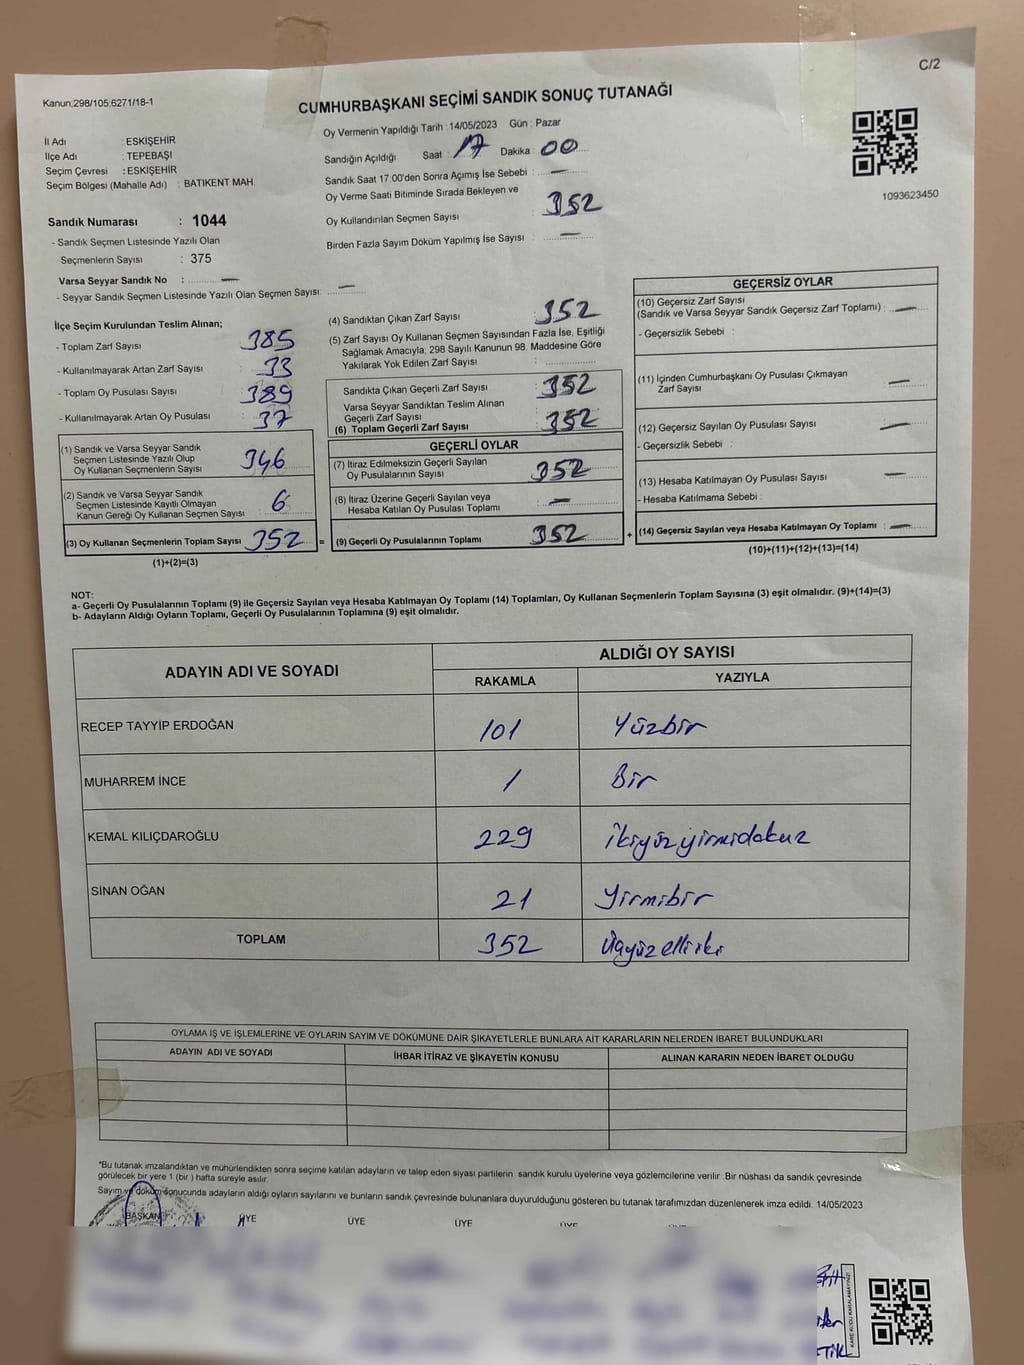 C/2
Kanun;298/105;6271/18-1
CUMHURBAŞKANI SEÇİMİ SANDIK SONUÇ TUTANAĞI
İl Adı : ESKİŞEHİR
İlçe Adı : TEPEBAŞI
Seçim Çevresi : ESKİŞEHİR
Seçim Bölgesi (Mahalle Adı) : BATIKENT MAH.
Sandık Numarası : 1044
- Sandık Seçmen Listesinde Yazılı Olan
Seçmenlerin Sayısı : 375
Varsa Seyyar Sandık No : —
- Seyyar Sandık Seçmen Listesinde Yazılı Olan Seçmen Sayısı: —
Oy Vermenin Yapıldığı Tarih : 14/05/2023 Gün : Pazar
Sandığın Açıldığı Saat : 17 Dakika : 00
Sandık Saat 17:00'den Sonra Açımış İse Sebebi : —
Oy Verme Saati Bitiminde Sırada Bekleyen ve
Oy Kullandırılan Seçmen Sayısı : 352
Birden Fazla Sayım Döküm Yapılmış İse Sayısı : —
1093623450
İlçe Seçim Kurulundan Teslim Alınan;
- Toplam Zarf Sayısı : 385
- Kullanılmayarak Artan Zarf Sayısı : 33
- Toplam Oy Pusulası Sayısı : 389
- Kullanılmayarak Artan Oy Pusulası : 37
(1) Sandık ve Varsa Seyyar Sandık
Seçmen Listesinde Yazılı Olup
Oy Kullanan Seçmenlerin Sayısı : 346
(2) Sandık ve Varsa Seyyar Sandık
Seçmen Listesinde Kayıtlı Olmayan
Kanun Gereği Oy Kullanan Seçmen Sayısı : 6
(3) Oy Kullanan Seçmenlerin Toplam Sayısı : 352
(1)+(2)=(3)
(4) Sandıktan Çıkan Zarf Sayısı : 352
(5) Zarf Sayısı Oy Kullanan Seçmen Sayısından Fazla İse, Eşitliği
Sağlamak Amacıyla, 298 Sayılı Kanunun 98. Maddesine Göre
Yakılarak Yok Edilen Zarf Sayısı :
Sandıkta Çıkan Geçerli Zarf Sayısı : 352
Varsa Seyyar Sandıktan Teslim Alınan
Geçerli Zarf Sayısı
(6) Toplam Geçerli Zarf Sayısı : 352
GEÇERLİ OYLAR
(7) İtiraz Edilmeksizin Geçerli Sayılan
Oy Pusulalarının Sayısı : 352
(8) İtiraz Üzerine Geçerli Sayılan veya
Hesaba Katılan Oy Pusulası Toplamı : —
= (9) Geçerli Oy Pusulalarının Toplamı : 352
GEÇERSİZ OYLAR
(10) Geçersiz Zarf Sayısı
(Sandık ve Varsa Seyyar Sandık Geçersiz Zarf Toplamı) : —
- Geçersizlik Sebebi :
(11) İçinden Cumhurbaşkanı Oy Pusulası Çıkmayan
Zarf Sayısı : —
(12) Geçersiz Sayılan Oy Pusulası Sayısı : —
- Geçersizlik Sebebi :
(13) Hesaba Katılmayan Oy Pusulası Sayısı : —
- Hesaba Katılmama Sebebi :
+ (14) Geçersiz Sayılan veya Hesaba Katılmayan Oy Toplamı : —
(10)+(11)+(12)+(13)=(14)
NOT:
a- Geçerli Oy Pusulalarının Toplamı (9) ile Geçersiz Sayılan veya Hesaba Katılmayan Oy Toplamı (14) Toplamları, Oy Kullanan Seçmenlerin Toplam Sayısına (3) eşit olmalıdır. (9)+(14)=(3)
b- Adayların Aldığı Oyların Toplamı, Geçerli Oy Pusulalarının Toplamına (9) eşit olmalıdır.
ADAYIN ADI VE SOYADI ALDIĞI OY SAYISI
RAKAMLA YAZIYLA
RECEP TAYYİP ERDOĞAN 101 Yüzbir
MUHARREM İNCE 1 Bir
KEMAL KILIÇDAROĞLU 229 ikiyüzyirmidokuz
SİNAN OĞAN 21 Yirmibir
TOPLAM 352 Üçyüzelliiki
OYLAMA İŞ VE İŞLEMLERİNE VE OYLARIN SAYIM VE DÖKÜMÜNE DAİR ŞİKAYETLERLE BUNLARA AİT KARARLARIN NELERDEN İBARET BULUNDUKLARI
ADAYIN ADI VE SOYADI İHBAR İTİRAZ VE ŞİKAYETİN KONUSU ALINAN KARARIN NEDEN İBARET OLDUĞU
*Bu tutanak imzalandıktan ve mühürlendikten sonra seçime katılan adayların ve talep eden siyasi partilerin sandık kurulu üyelerine veya gözlemcilerine verilir. Bir nüshası da sandık çevresinde
görülecek bir yere 1 (bir) hafta süreyle asılır.
Sayım ve döküm sonucunda adayların aldığı oyların sayılarını ve bunların sandık çevresinde bulunanlara duyurulduğunu gösteren bu tutanak tarafımızdan düzenlenerek imza edildi. 14/05/2023
BAŞKAN ÜYE ÜYE ÜYE ÜYE